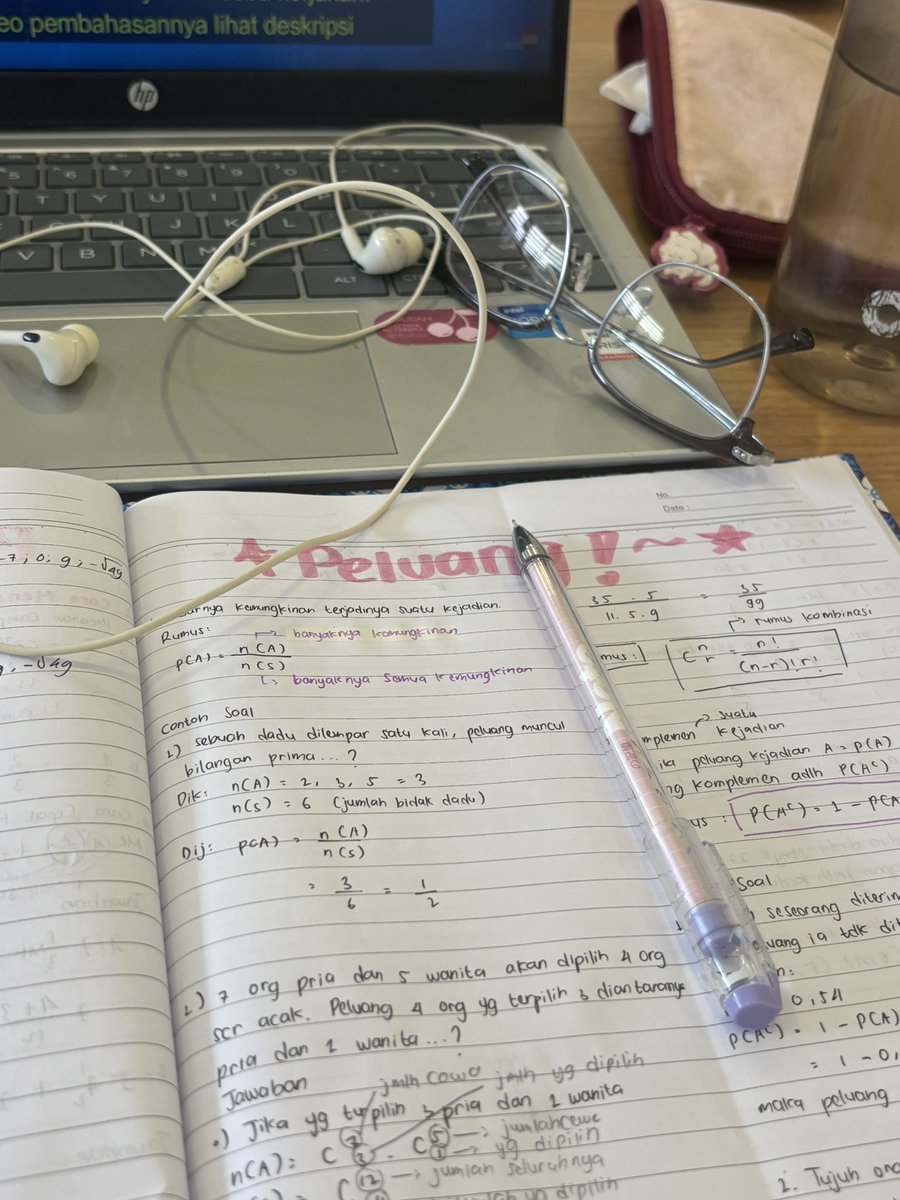 eo pembahasannya lihat deskripsi
hp
5 6 7 8
T Y U I
J K L
V B N M
ALT
CTRL
intel
-7, 0, 9, -√49
, -√49
No.
Date :
Peluang!
arnya kemungkinan terjadinya suatu kejadian.
Rumus:
banyaknya kemungkinan
P(A) = n(A)
n(S)
banyaknya semua kemungkinan
Contoh Soal
1.) sebuah dadu dilempar satu kali, peluang muncul
bilangan prima...?
Dik: n(A) = 2, 3, 5 = 3
n(S) = 6 (jumlah bidak dadu)
Dij: P(A) = n(A)
n(S)
= 3 = 1
6 2
2.) 7 org pria dan 5 wanita akan dipilih 4 org
scr acak. Peluang 4 org yg terpilih 3 diantaranya
pria dan 1 wanita...?
Jawaban
jmlh cowo jmlh yg dipilih
•) Jika yg terpilih 3 pria dan 1 wanita
n(A): C 7 3 . C 5 1
jumlah cewe
yg dipilih
C 12
jumlah seluruhnya
dipilih
35 . 5 = 35
11. 5. 9 99
rumus kombinasi
mus: C n r = n!
(n-r)! r!
suatu
mplemen kejadian
ika peluang kejadian A = P(A)
ng komplemen adlh P(Aᶜ)
us : P(Aᶜ) = 1 - P(A
Soal
seseorang diterim
uang ia tdk dit
n:
0,54
P(Aᶜ) = 1 - P(A)
= 1 - 0,
maka peluang
2. Tujuh ora